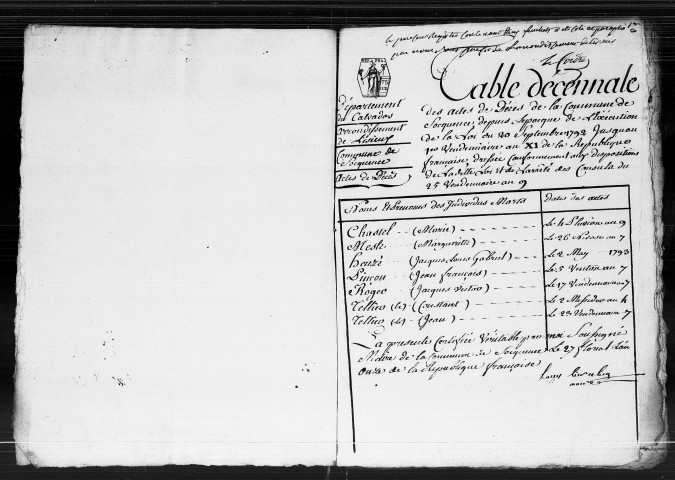 le present Registre Contenant
par nous sous prefet de l'arrondissement de Lisieux
Table decennale
Département
du Calvados
Arrondissement
de Lisieux
Commune de
Socquence
Actes de Décès
des actes de Décès de la Commune de
Socquence, depuis l'epoque de l'Execution
de la Loi du 20 Septembre 1792 Jusqu'au
1er Vendemiaire an XI de la Republique
française, dressée Conformement aux dispositions
de Ladite Loi et de l'arrêté des Consuls du
25 Vendemiaire an 9
Noms et Prenoms des Individus Morts
Dates des actes
Chastel (Marie) Le 4 Pluviose an 9
Mesle (Marguerite) Le 26 Nivose an 7
heuzé (Jacques Louis Gabriel) Le 2 May 1793
Pinson (Jean françois) Le 5 Ventose an 7
Roger (Jacques) Le 17 Vendemiaire an 7
Tellier (le) (Constant) Le 2 Messidor an 4
Tellier (le) (Jean) Le 23 Vendemiaire an 7
La presente Certifiée Véritable par moi Soussigné
Maire de la Commune de Socquence Le 27 floreal L'an
Onze de la République française
Louis
maire